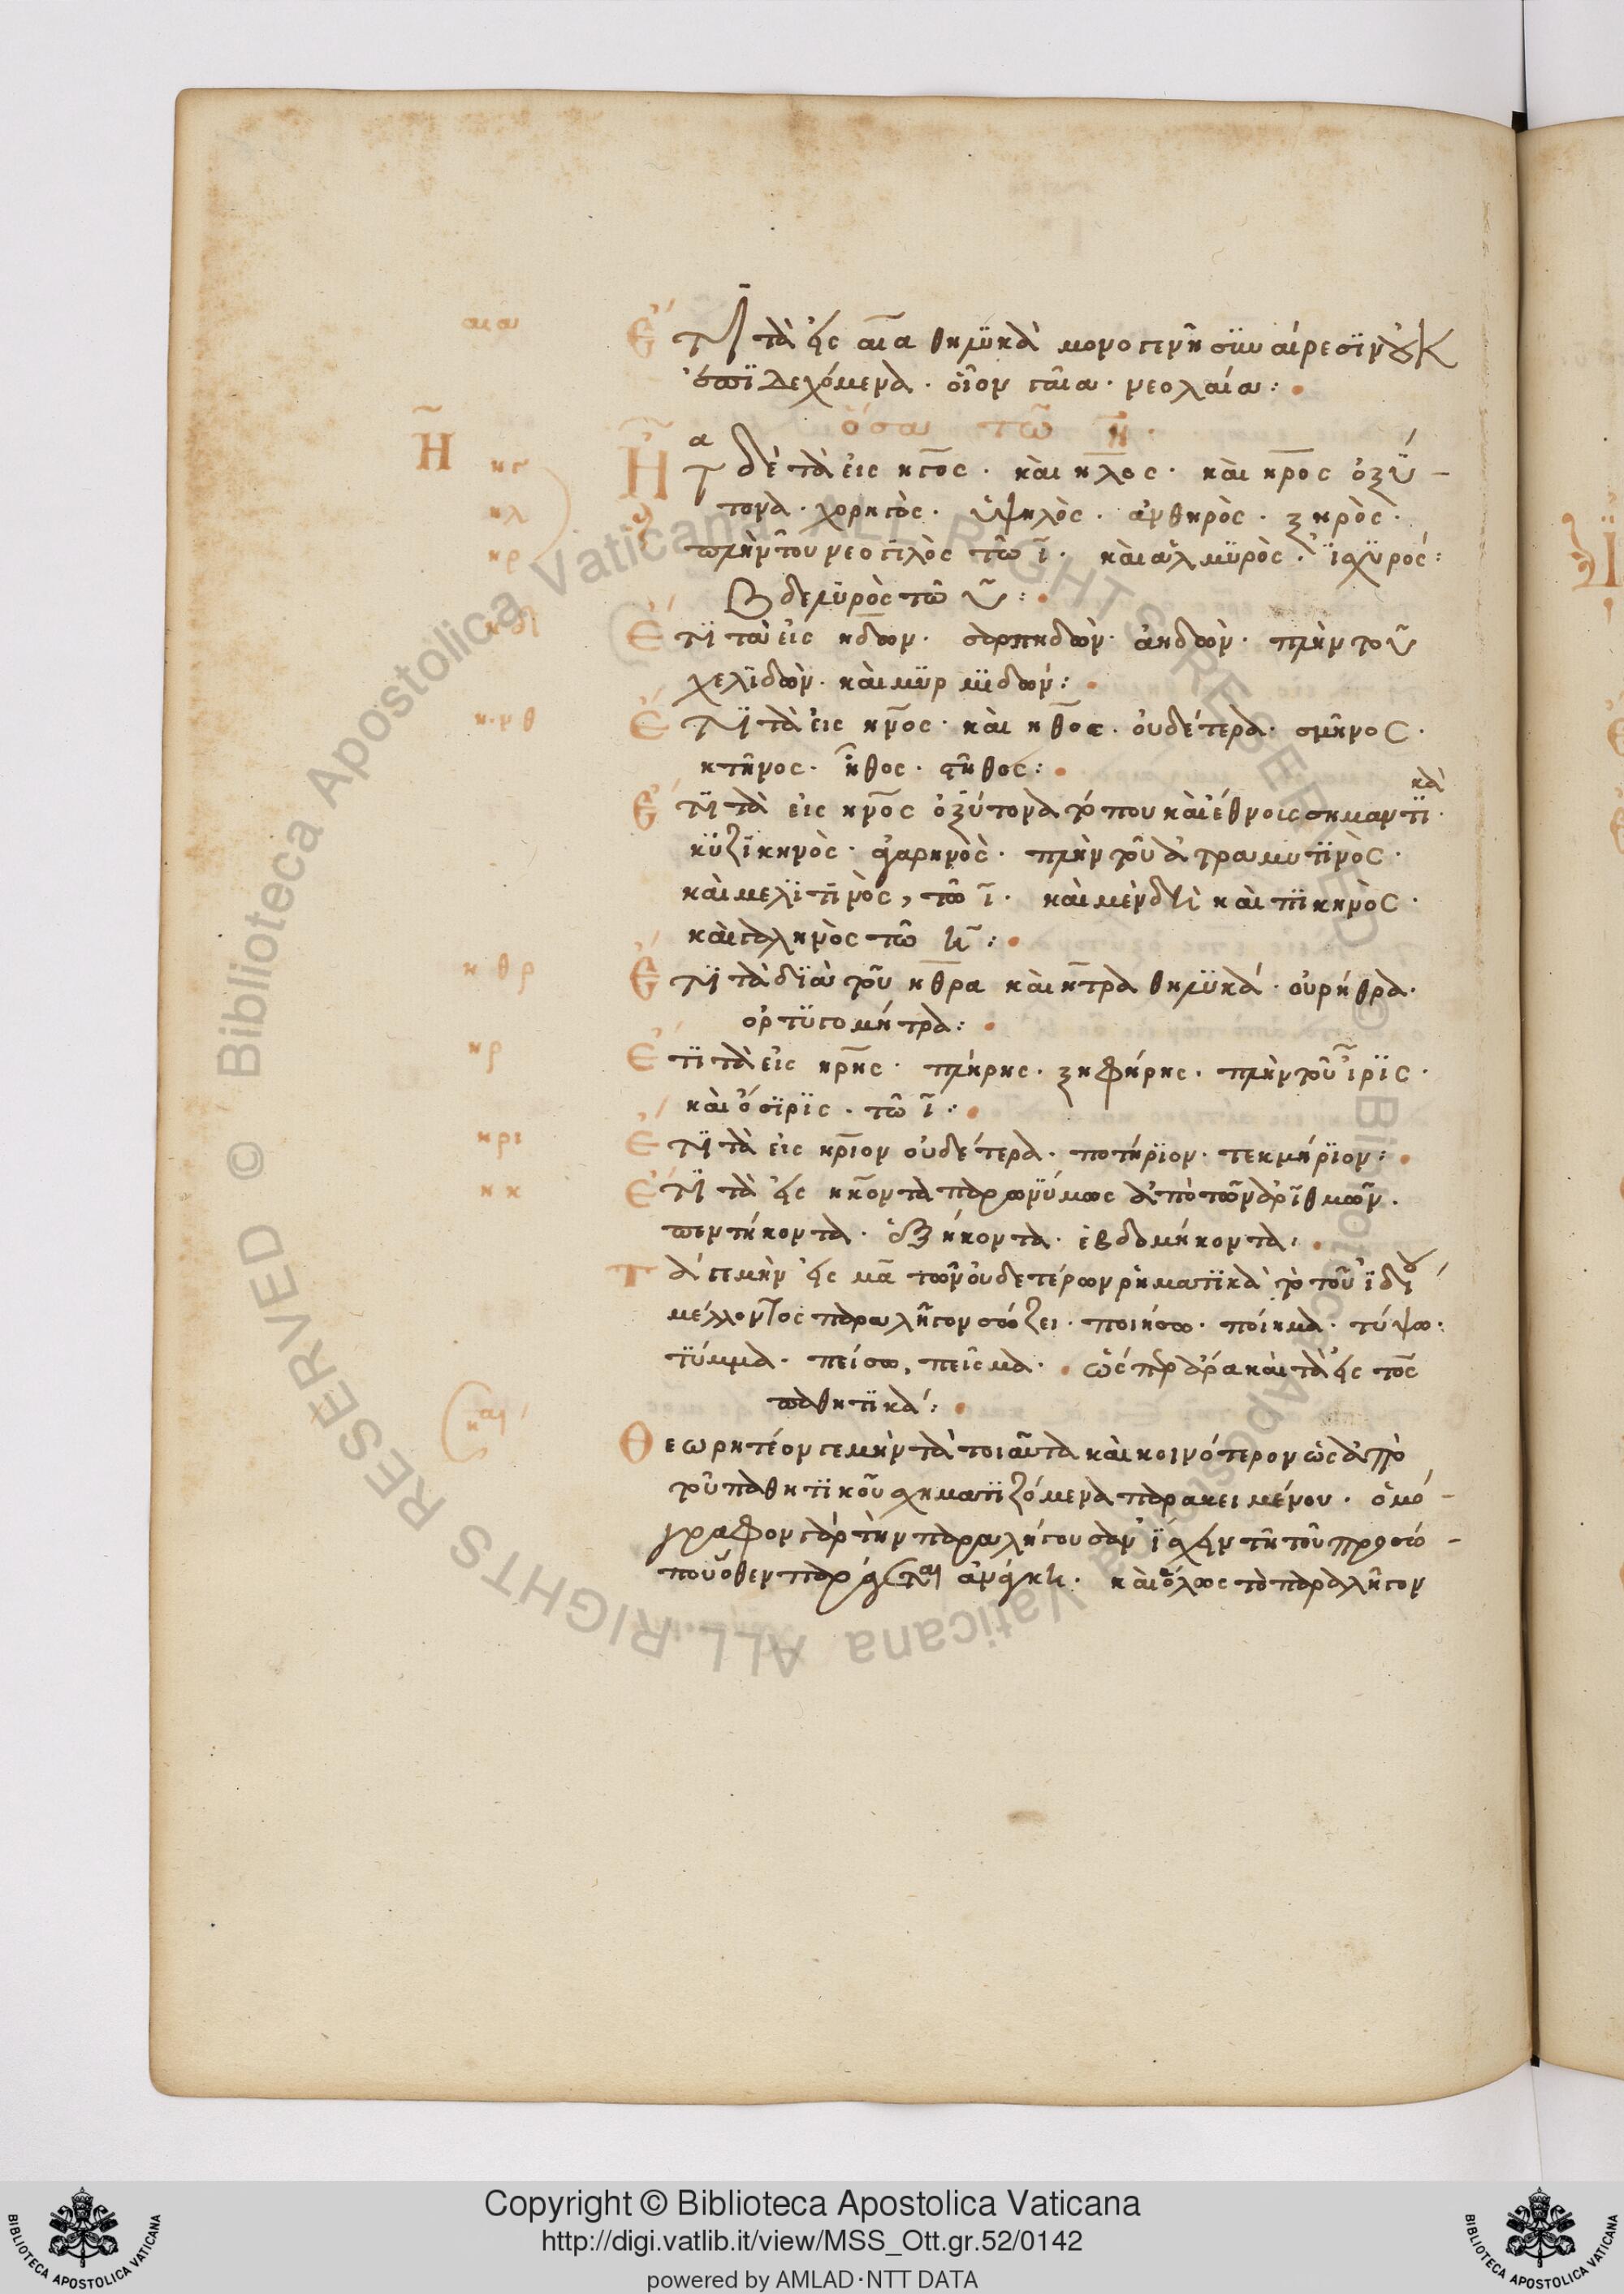 αια
Ἔτι τὰ εἰς αια θηλϋκὰ μονογενῆ σϋναίρεσϊν οὐκ
ἐπϊδεχόμενα · οἷον γαῖα · νεολαία :
ὅσα τῶ η ·
Η
ηγ
Ητ δὲ τὰ εἰς ητος · καὶ ηλος · καὶ ηρος ὀξϋ-
ηλ
τονα · χορητὸς · ὑψηλὸς · ἀνθηρὸς · ξηρὸς ·
ηρ
πλὴν του νεογιλὸς τῶ ῑ · καὶ ἁλμϋρὸς · ἰσχϋρός :
Βδελϋρὸς τῶ ῡ :
ηδ
Ἔτϊ τὰ εἰς ηδων · σαρπηδὼν · ἀηδὼν · πλὴν τοῦ
χελϊδὼν · καὶ μϋρμϊδών :
η·νθ
Ἔτϊ τὰ εἰς ηνος · καὶ ηθος · οὐδέτερα · σμῆνος ·
κτῆνος · ἦθος · στῆθος :
Ἔτϊ τὰ εἰς ηνος ὀξύτονα τόπου καὶ ἔθνοις σημαντϊκὰ ·
κϋζϊκηνὸς · ἀγαρηνὸς · πλὴν τοῦ ἀτραμυτϊνὸς ·
καὶ μελϊτϊνὸς, τῶ ῑ · καὶ μένδη καὶ πϊκηνὸς ·
καὶ γαληνὸς τῶ η :
ηθρ
Ἔτϊ τὰ δϊὰ τοῦ ηθρα καὶ ητρα θηλϋκά · οὐρήθρα ·
ὀρτϋγομήτρα :
ηρ
Ἔτϊ τὰ εἰς ηρης · πλήρης · ξηφήρης · πλὴν τοῦ ἶρϊς ·
καὶ ὄσϊρϊς · τῶ ῑ :
ηρι
Ἔτϊ τὰ εἰς ηριον οὐδέτερα · ποτήρϊον · τεκμήρϊον :
ηκ
Ἔτϊ τὰ εἰς ηκοντα παρωνϋμως ἀπὸ τῶν ἀρϊθμῶν ·
πεντήκοντα · ἑξήκοντα · ἑβδομήκοντα ·
Τά γε μὴν εἰς μα τῶν οὐδετέρων ρηματϊκὰ τὸ τοῦ ἰδίου
μέλλοντος παραλῆγον σώζει · ποιήσω · ποίημα · τύψω :
τϋμμα · πείσω, πεῖσμα · ὥσπερ ἄρα καὶ τὰ εἰς τος
παθητϊκά :
Θεωρητέον γε μὴν τὰ τοιαῦτα καὶ κοινότερον ὡς ἀπὸ
τοῦ παθητϊκοῦ σχηματϊζόμενα παρακειμένου · ὁμό-
γραφον γὰρ τὴν παραλήγουσαν ἴσχειν τῆ τοῦ πρωτο-
που ὅθεν παρῆκται ἀνάγκη · καὶ ὅλως τὸ παραλῆγον
Copyright © Biblioteca Apostolica Vaticana
http://digi.vatlib.it/view/MSS_Ott.gr.52/0142
powered by AMLAD·NTT DATA